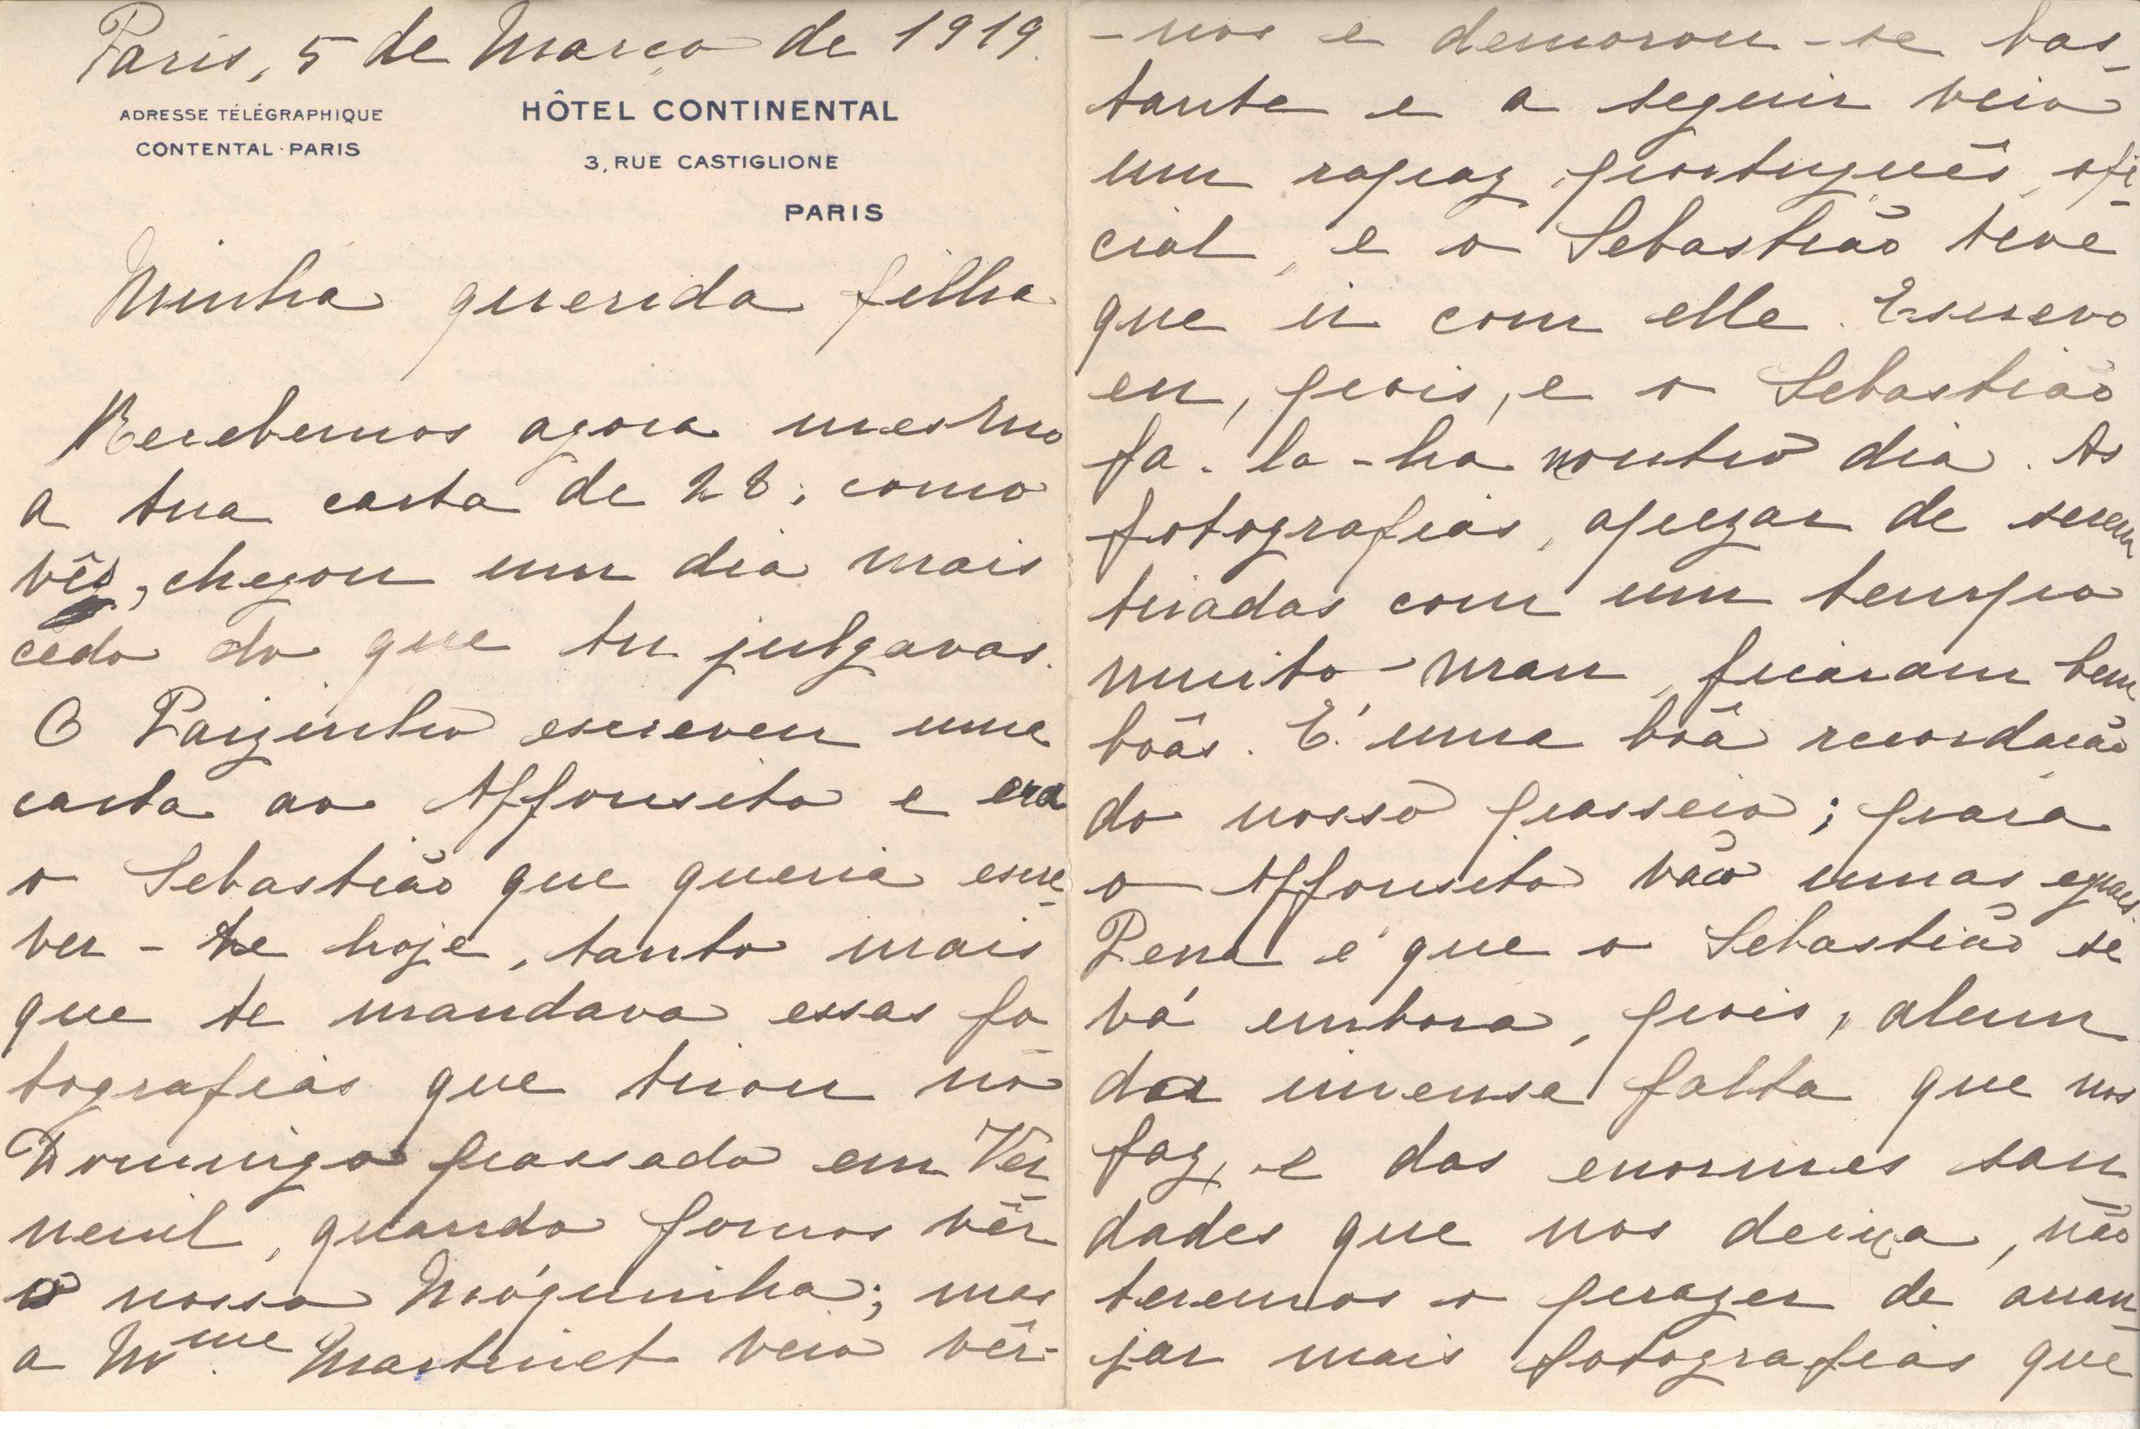 Paris, 5 de Março de 1919.
ADRESSE TÉLÉGRAPHIQUE
CONTENTAL·PARIS
HÔTEL CONTINENTAL
3, RUE CASTIGLIONE
PARIS
Minha querida filha
Recebemos agora mesmo
a tua carta de 28; como
vês, chegou um dia mais
cedo do que tu julgavas.
O Paizinho escreveu uma
carta ao Affonsito e era
o Sebastião que queria escre-
ver-te hoje, tanto mais
que te mandava essas fo-
tografias que tirou no
Domingo passado em Ver-
neuil, quando fomos vêr
o nosso Móguinha; mas
a Mme Martinet veio vêr-
-nos e demorou-se bas-
tante e a seguir veio
um rapaz português, ofi-
cial, e o Sebastião teve
que ir com elle. Escrevo
eu, pois, e o Sebastião
fa-lo-ha noutro dia. As
fotografias, apezar de serem
tiradas com um tempo
muito mau, ficaram bem
bôas. É uma bôa recordação
do nosso passeio; para
o Affonsito vão umas eguaes.
Pena é que o Sebastião se
vá embora, pois, alem
da imensa falta que nos
faz, e das enormes sau-
dades que nos deixa, não
teremos o prazer de arran-
jar mais fotografias que